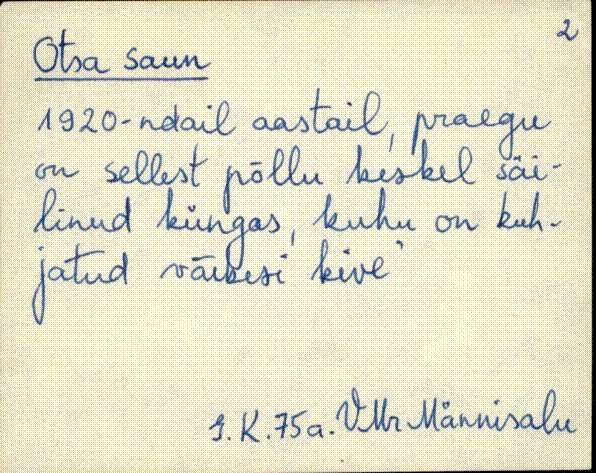 2
Otsa saun
1920-ndail aastail, praegu
on sellest põllu keskel säi-
linud küngas, kuhu on kuh-
jatud väikesi kive
J.K.75a. VMr Männisalu